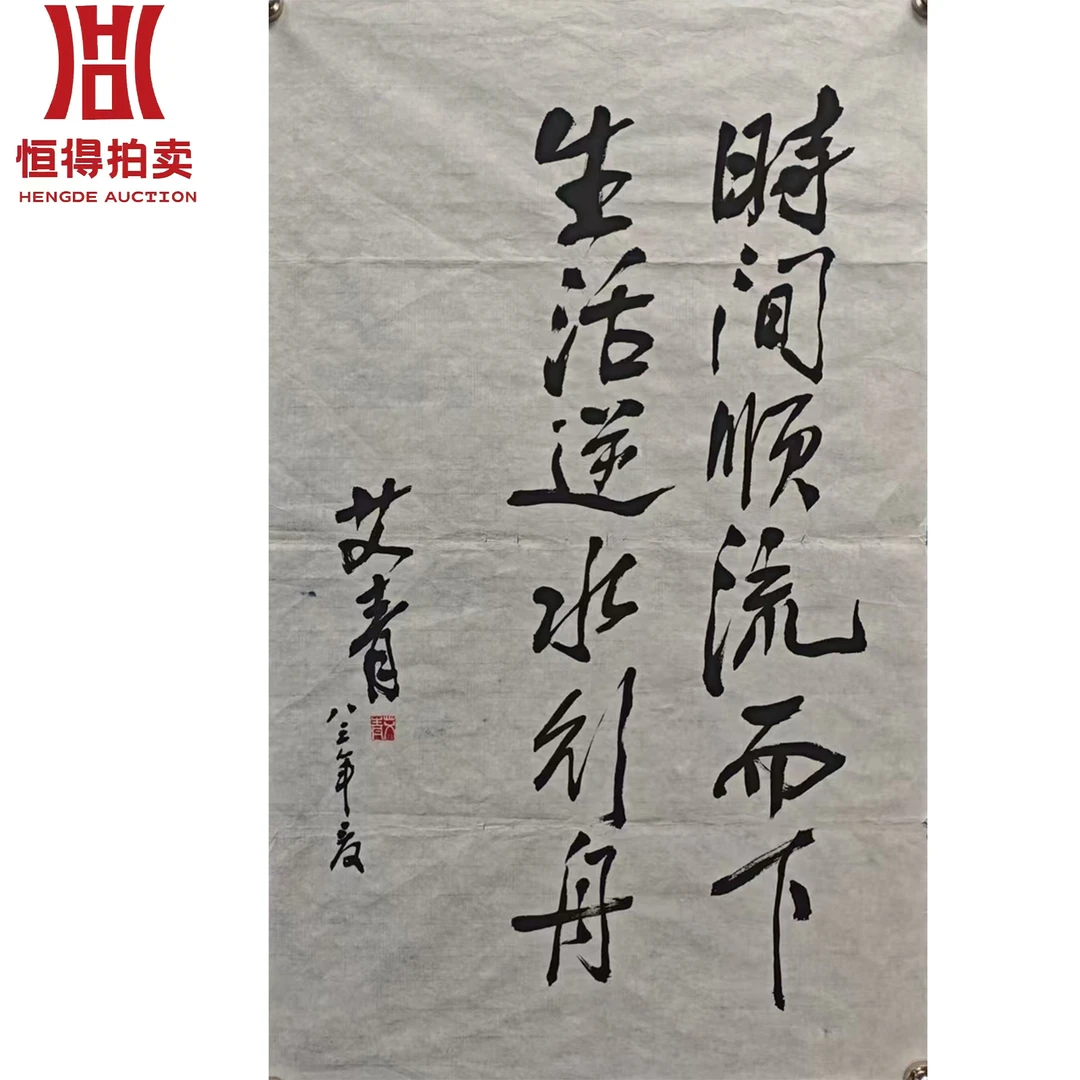 恒得拍卖
HENGDE AUCTION
時间顺流而下
生活逆水行舟
艾青
艾青
八三年夏